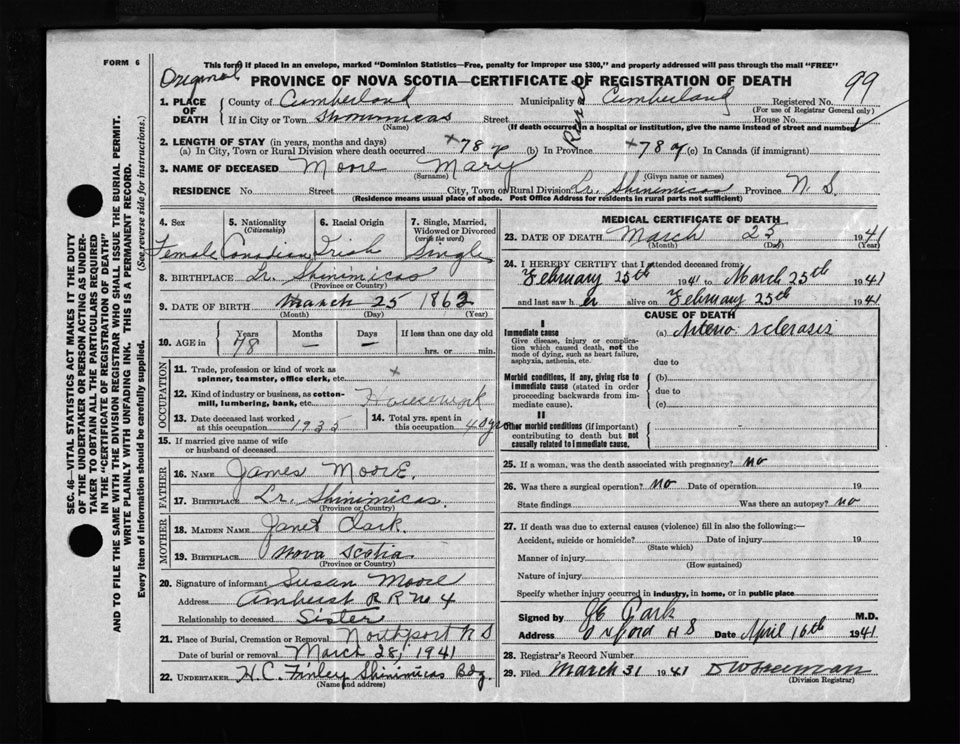 FORM 6
This form if placed in an envelope, marked "Dominion Statistics—Free, penalty for improper use $300," and properly addressed will pass through the mail "FREE"
Original
PROVINCE OF NOVA SCOTIA—CERTIFICATE OF REGISTRATION OF DEATH
99
1. PLACE OF DEATH
County of Cumberland Municipality of Cumberland Registered No.
(For use of Registrar General only)
Rural
If in City or Town Shinimicas Street House No.
(Name) (If death occurred in a hospital or institution, give the name instead of street and number)
2. LENGTH OF STAY (in years, months and days)
(a) In City, Town or Rural Division where death occurred 78 y (b) In Province 78 y (c) In Canada (if immigrant)
3. NAME OF DECEASED Moore Mary
(Surname) (Given name or names)
RESIDENCE No. Street City, Town or Rural Division Lr. Shinimicas Province N. S.
(Residence means usual place of abode. Post Office Address for residents in rural parts not sufficient)
4. Sex 5. Nationality (Citizenship) 6. Racial Origin 7. Single, Married, Widowed or Divorced (write the word)
Female Canadian Irish Single
8. BIRTHPLACE Lr. Shinimicas
(Province or Country)
9. DATE OF BIRTH March 25 1862
(Month) (Day) (Year)
10. AGE in Years Months Days If less than one day old
78 — — hrs. or min.
OCCUPATION
11. Trade, profession or kind of work as spinner, teamster, office clerk, etc. x
12. Kind of industry or business, as cotton-mill, lumbering, bank, etc. Housework
13. Date deceased last worked at this occupation 1935 14. Total yrs. spent in this occupation 40 yrs
15. If married give name of wife or husband of deceased
FATHER
16. NAME James Moore.
17. BIRTHPLACE Lr. Shinimicas.
(Province or Country)
MOTHER
18. MAIDEN NAME Janet Clark.
19. BIRTHPLACE Nova Scotia
(Province or Country)
20. Signature of informant Susan Moore
Address Amherst R R No 4
Relationship to deceased Sister
21. Place of Burial, Cremation or Removal Northport N S
Date of burial or removal March 28, 1941
22. UNDERTAKER H.C. Finley Shinimicas Bdg.
(Name and address)
MEDICAL CERTIFICATE OF DEATH
23. DATE OF DEATH March 25 1941
(Month) (Day) (Year)
24. I HEREBY CERTIFY that I attended deceased from
February 25th 1941 to March 25th 1941
and last saw her alive on February 25th 1941
CAUSE OF DEATH
I
Immediate cause (a) Arterio sclerosis
Give disease, injury or complication which caused death, not the mode of dying, such as heart failure, asphyxia, asthenia, etc.
due to
Morbid conditions, if any, giving rise to immediate cause (stated in order proceeding backwards from immediate cause).
(b)
due to
(c)
II
Other morbid conditions (if important) contributing to death but not causally related to immediate cause.
25. If a woman, was the death associated with pregnancy? no
26. Was there a surgical operation? no Date of operation 19
State findings Was there an autopsy? no
27. If death was due to external causes (violence) fill in also the following:—
Accident, suicide or homicide? Date of injury 19
(State which)
Manner of injury
(How sustained)
Nature of injury
Specify whether injury occurred in industry, in home, or in public place
Signed by M.D.
Address Oxford N S Date April 16th 1941
28. Registrar's Record Number
29. Filed March 31 1941
(Division Registrar)
SEC. 46—VITAL STATISTICS ACT MAKES IT THE DUTY
OF THE UNDERTAKER OR PERSON ACTING AS UNDER-
TAKER TO OBTAIN ALL THE PARTICULARS REQUIRED
IN THE "CERTIFICATE OF REGISTRATION OF DEATH"
AND TO FILE THE SAME WITH THE DIVISION REGISTRAR WHO SHALL ISSUE THE BURIAL PERMIT.
WRITE PLAINLY WITH UNFADING INK. THIS IS A PERMANENT RECORD.
Every item of information should be carefully supplied. (See reverse side for instructions.)